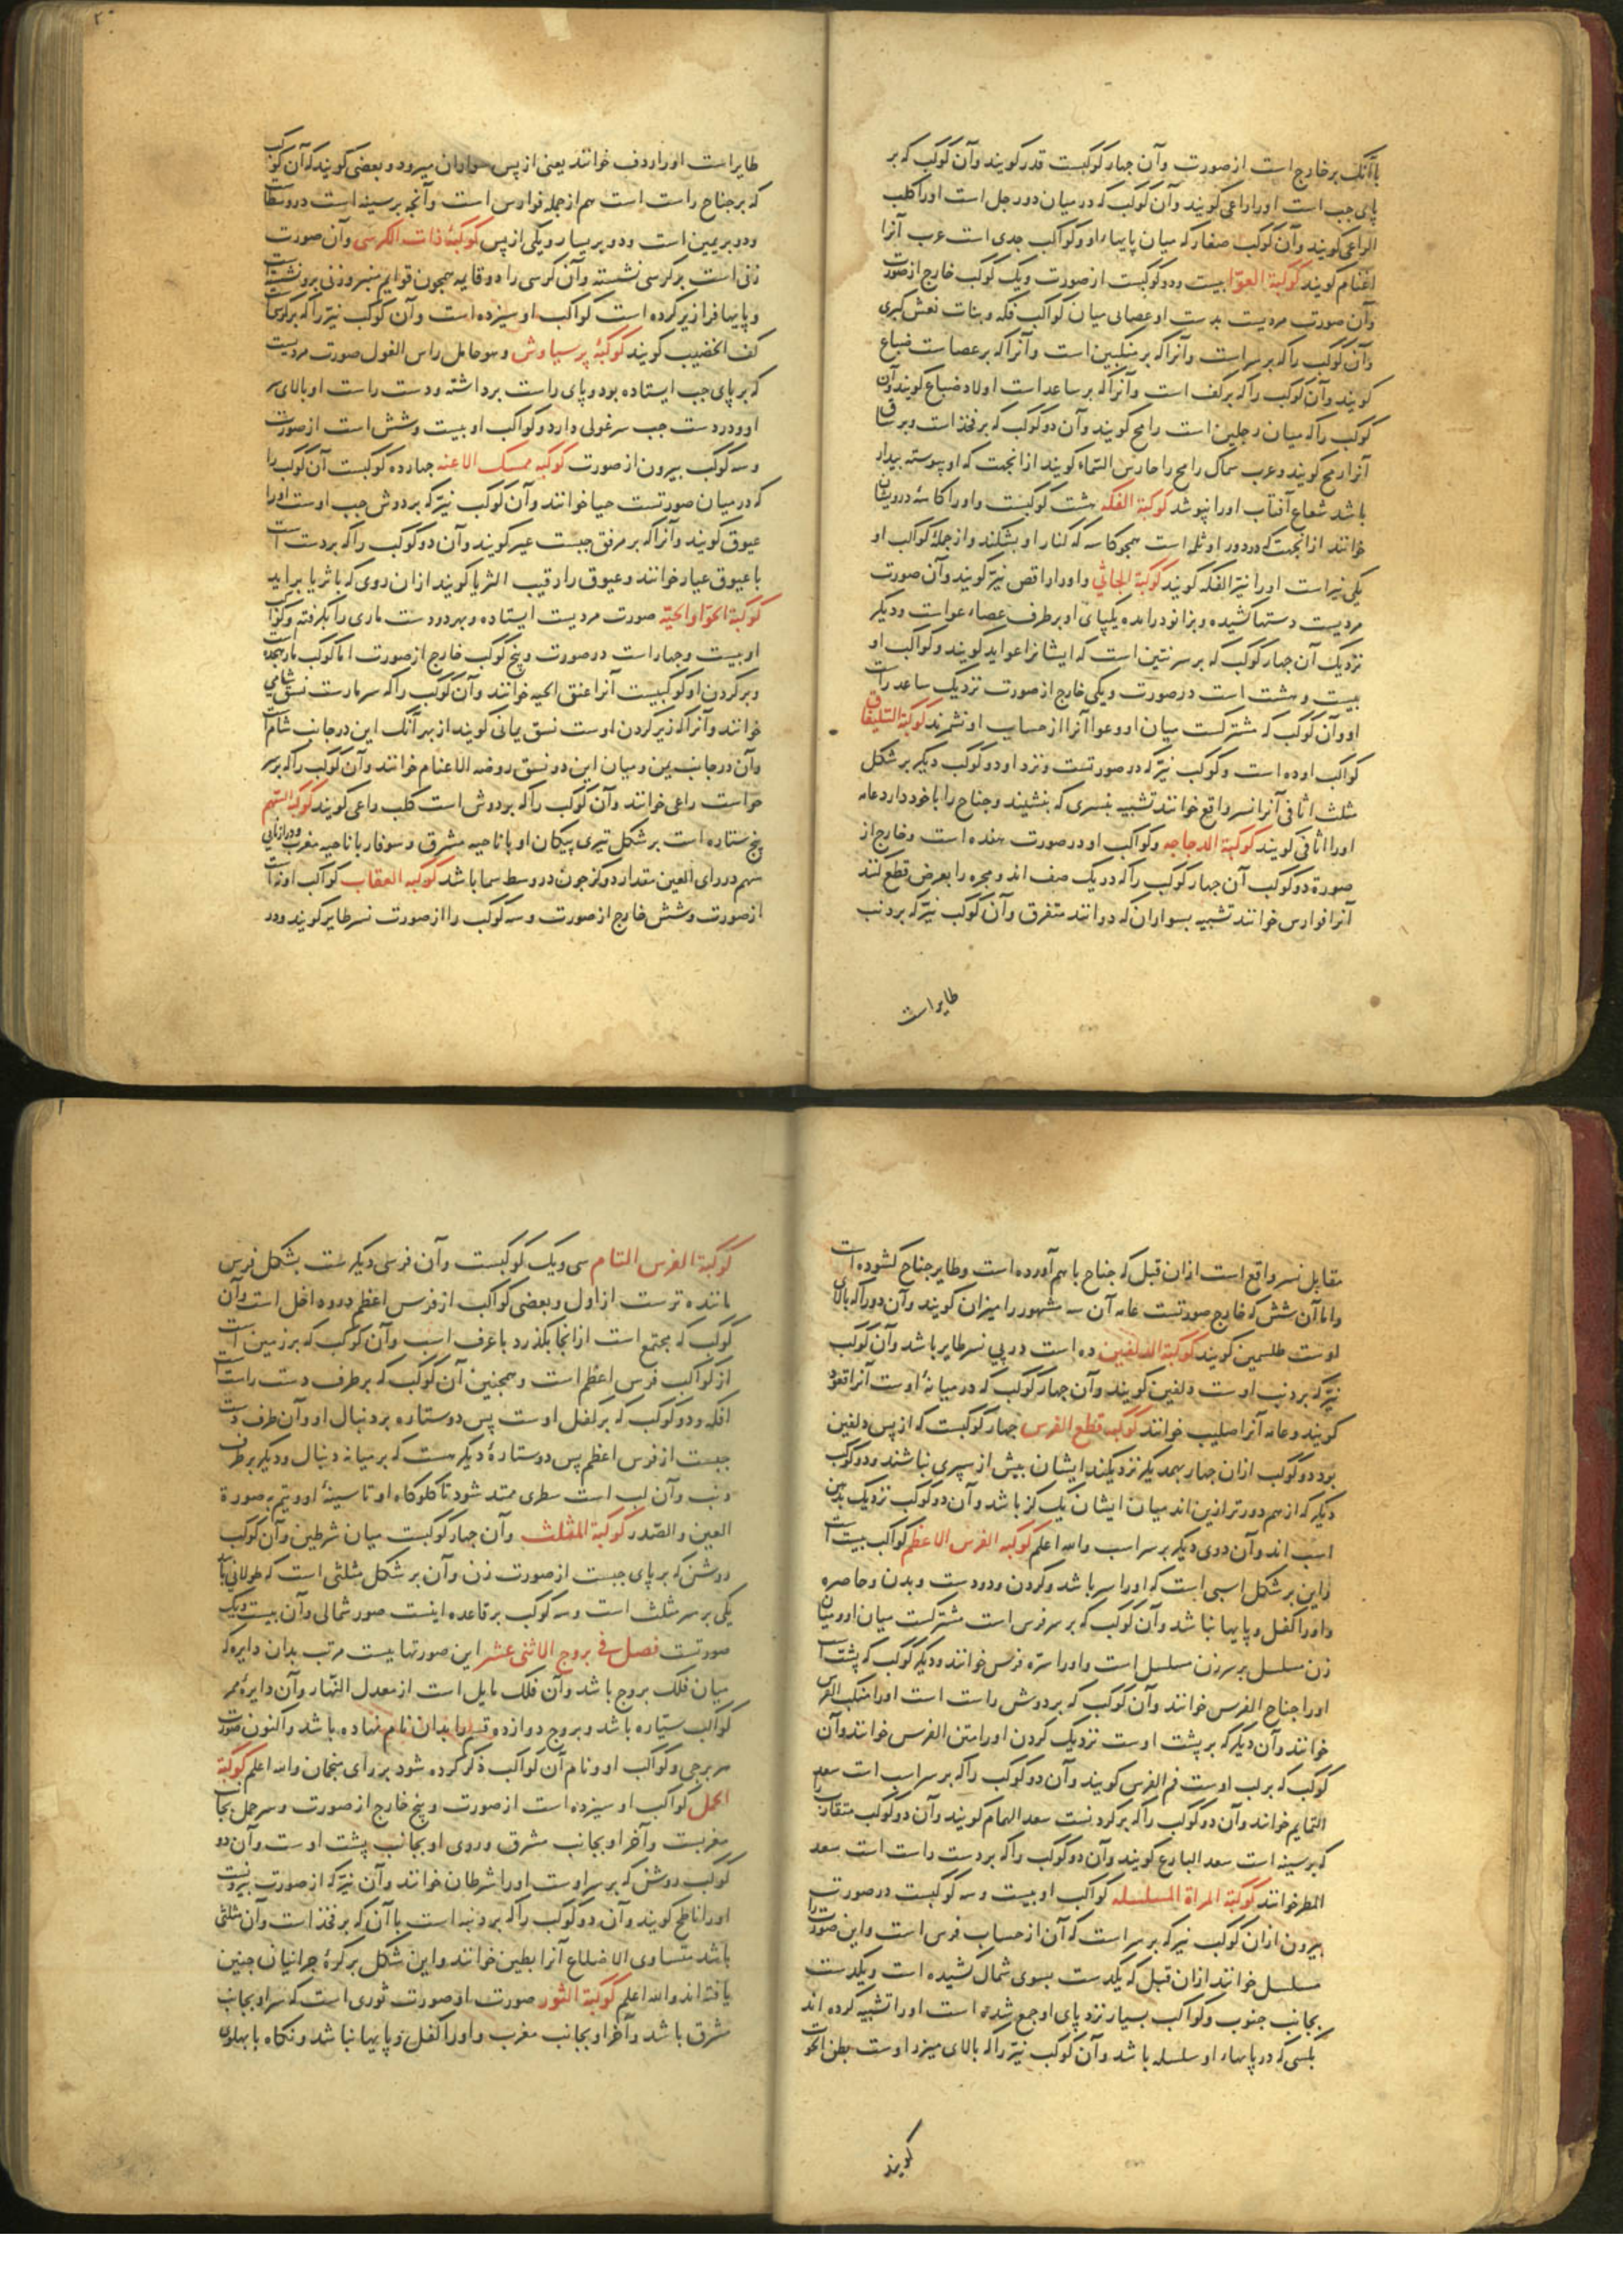 باآنک بر خارج است از صورت وآن چهار کوکبست قدر کویند وآن کوکب که بر
پای چپ است اورا راعی کویند وآن کوکب که در میان دو رجل است اورا کلب
الراعی کویند وآن کوکب صغار که میان پایهاء او و کواکب جدی است عرب آنرا
اغنام کویند کوکبة العوّا بیست ودو کوکبست از صورت ویک کوکب خارج از صورت
وآن صورت مردیست بدست او عصایی میان کواکب فکه و بنات نعش کبری
وآن کوکب را که بر سر است وآنرا که بر منکبین است وآنرا که بر عصاست ضباع
کویند وآن کوکب را که بر کف است وآنرا که بر ساعد است اولاد ضباع کویند وآن
کوکب را که میان رجلین است رامح کویند وآن دو کوکب که بر فخذ است و بر ساق
آنرا رمح کویند وعرب سماک رامح را حارس السماء کویند از انجهت که او پیوسته پیدا
باشد شعاع آفتاب اورا نپوشد کوکبة الفکه هشت کوکبست واورا کاسهٔ درویشان
خوانند از انجهت که در دور او ثلمه است همچو کاسه که کنار او بشکند واز جملهٔ کواکب او
یکی نیر است اورا نیّر الفکه کویند کوکبة الجاثی واورا راقص نیز کویند وآن صورت
مردیست دستها کشیده و بزانو درامده یکپای او بر طرف عصاء عواست ودیکر
نزدیک آن چهار کوکب که بر سر تنین است که ایشانرا عواید کویند وکواکب او
بیست و هشت است در صورت ویکی خارج از صورت نزدیک ساعد راست
او وآن کوکب که مشترکست میان او وعوا آنرا از حساب او نشمرند کوکبة السلیفاق
کواکب او ده است وکوکب نیّر که در صورتست ونزد او دو کوکب دیکر بر شکل
مثلث اثافی آنرا نسر واقع خوانند تشبیه بنسری که بنشیند وجناح را با خود دارد وعامه
اورا اثافی کویند کوکبة الدجاجه وکواکب او در صورت هفده است وخارج از
صورة دو کوکب آن چهار کوکب را که در یک صف اند ومجره را بعرض قطع کنند
آنرا فوارس خوانند تشبیه بسواران که دوانند متفرق وآن کوکب نیّر که بر ذنب
طایر است
طایر است اورا ردف خوانند یعنی از پس سواران میرود و بعضی کویند که آن کوکب
که بر جناح راست است هم از جمله فوارس است وآنچه بر سینه است در وسط
ودو بر یمین است ودو بر یسار ویکی از پس کوکبهٔ ذات الکرسی وآن صورت
زنی است بر کرسی نشسته وآن کرسی را دو قایمه همچون قوایم منبر وزنی برو نشسته است
و پایها فرازیر کرده است کواکب او سیزده است وآن کوکب نیّر را که بر کرسی است
کف الخضیب کویند کوکبهٔ برسیاوش وهو حامل راس الغول صورت مردیست
که بر پای چپ ایستاده بود و پای راست برداشته ودست راست او بالای سر
او ودر دست چپ سر غولی دارد وکواکب او بیست وشش است از صورت
وسه کوکب بیرون از صورت کوکبه ممسک الاعنه چهارده کوکبست آن کوکب را
که در میان صورتست حیا خوانند وآن کوکب نیّر که بر دوش چپ اوست اورا
عیوق کویند وآنرا که بر مرفق چپست عیر کویند وآن دو کوکب را که بر دست است
با عیوق عیار خوانند وعیوق را رقیب الثریا کویند ازان روی که با ثریا براید
کوکبة الحوّا والحیّه صورت مردیست ایستاده و بهر دو دست ماری را بکرفته وکواکب
او بیست وچهار است در صورت وپنج کوکب خارج از صورت اما کوکب مار هجده است
و بر کردن او کوکبیست آنرا عنق الحیه خوانند وآن کوکب را که سر مارست نسق شامی
خوانند وآنرا که زیر کردن اوست نسق یمانی کویند از بهر آنک این در جانب شام است
وآن در جانب یمن ومیان این دو نسق روضه الاغنام خوانند وآن کوکب را که بر سر
حواست راعی خوانند وآن کوکب را که بر دوش است کلب راعی کویند کوکبه السهم
پنج ستاره است بر شکل تیری پیکان او با ناحیه مشرق وسوفار با ناحیه مغرب ودرازنایی
سهم در رای العین مقدار دو کز چون در وسط سما باشد کوکبه العقاب کواکب او نه است
از صورت وشش خارج از صورت وسه کوکب را از صورت نسر طایر کویند ودر
مقابل نسر واقع است ازان قبل که جناح با هم آورده است وطایر جناح کشوده است
واما آن شش که خارج صورتست عامه آن سه مشهور را میزان کویند وآن دو را که بالای
اوست ظلیمین کویند کوکبة الدلفین ده است در پی نسر طایر باشد وآن کوکب
نیّر که بر ذنب اوست دلفین کویند وآن چهار کوکب که در میانهٔ اوست آنرا قعود
کویند وعامه آنرا صلیب خوانند کوکبه قطع الفرس چهار کوکبست که از پس دلفین
بود دو کوکب ازان چهار بهمدیکر نزدیکند ایشان بیش از سپری نباشند ودو کوکب
دیکر که از هم دورتر ازین اند میان ایشان یک کز باشد وآن دو کوکب نزدیک بدهن
اسب اند وآن دوی دیکر بر سر اسب والله اعلم کوکبه الفرس الاعظم کواکب بیست است
واین بر شکل اسبی است که اورا سر باشد وکردن ودو دست و بدن وخاصره
واورا کفل و پایها نباشد وآن کوکب که بر سر فرس است مشترکست میان او ومیان
زن مسلسل بر سر زن مسلسل است واورا سرّه فرس خوانند ودیکر کوکب که پشت است
اورا جناح الفرس خوانند وآن کوکب که بر دوش راست است اورا منکب الفرس
خوانند وآن دیکر که بر پشت اوست نزدیک کردن اورا متن الفرس خوانند وآن
کوکب که بر لب اوست فم الفرس کویند وآن دو کوکب را که بر سر اسب است سعد
البهایم خوانند وآن دو کوکب را که بر کردنست سعد الهمام کویند وآن دو کوکب متقارب را
که بر سینه است سعد البارع کویند وآن دو کوکب را که بر دست راست است سعد
المطر خوانند کوکبة المراة المسلسله کواکب او بیست وسه کوکبست در صورت
بیرون ازان کوکب نیر که بر سر است که آن از حساب فرس است واین صورت را
مسلسل خوانند ازان قبل که یکدست بسوی شمال کشیده است ویکدست
بجانب جنوب وکواکب بسیار نزد پای او جمع شده است اورا تشبیه کرده اند
بکسی که در پایهاء او سلسله باشد وآن کوکب نیّر را که بالای میزر اوست بطن الحوت
کویند
کوکبة الفرس التام سی ویک کوکبست وآن فرسی دیکرست بشکل فرس
ماننده ترست از اول و بعضی کواکب از فرس اعظم درو داخل است وآن
کوکب که مجتمع است از انجا بکذرد با عرف اسب وآن کوکب که بر زمین است
از کواکب فرس اعظم است وهمچنین آن کوکب که بر طرف دست راست است
افکه ودو کوکب که بر کفل اوست پس دو ستاره بر دنبال او وآن طرف دست
چپست از فرس اعظم پس دو ستارهٔ دیکرست که بر میانه دنبال ودیکر بر طرف
ذنب وآن لب است سطری ممتد شود تا کلوکاه او تا سینهٔ او ویتم به صورة
العین والصدر کوکبة المثلث وآن چهار کوکبست میان شرطین وآن کوکب
روشن که بر پای چپست از صورت زن وآن بر شکل مثلثی است که طولانی باشد
یکی بر سر مثلث است وسه کوکب بر قاعده اینست صور شمالی وآن بیست ویک
صورتست فصل فی بروج الاثنی عشر این صورتهاییست مرتب بدان دایره که
میان فلک بروج باشد وآن فلک مایل است از معدل النهار وآن دایرهٔ ممر
کواکب سیّاره باشد و بروج دوازده قسم را بدان نام نهاده باشد واکنون صورت
هر برجی وکواکب او ونام آن کواکب ذکر کرده شود بر رای منجمان والله اعلم کوکبة
الحمل کواکب او سیزده است از صورت وپنج خارج از صورت وسر حمل بجانب
مغربست وآخر او بجانب مشرق وروی او بجانب پشت اوست وآن دو
کوکب روشن که بر سر اوست اورا شرطان خوانند وآن نیّر که از صورت بیرونست
اورا ناطح کویند وآن دو کوکب را که بر دنبه است باآن که بر فخذ است وآن مثلثی
باشد متساوی الاضلاع آنرا بطین خوانند واین شکل بر کرهٔ حرانیان چنین
یافته اند والله اعلم کوکبة الثور صورت از صورت ثوری است که سر او بجانب
مشرق باشد وآخر او بجانب مغرب واورا کفل و پایها نباشد ونکاه با پهلوی